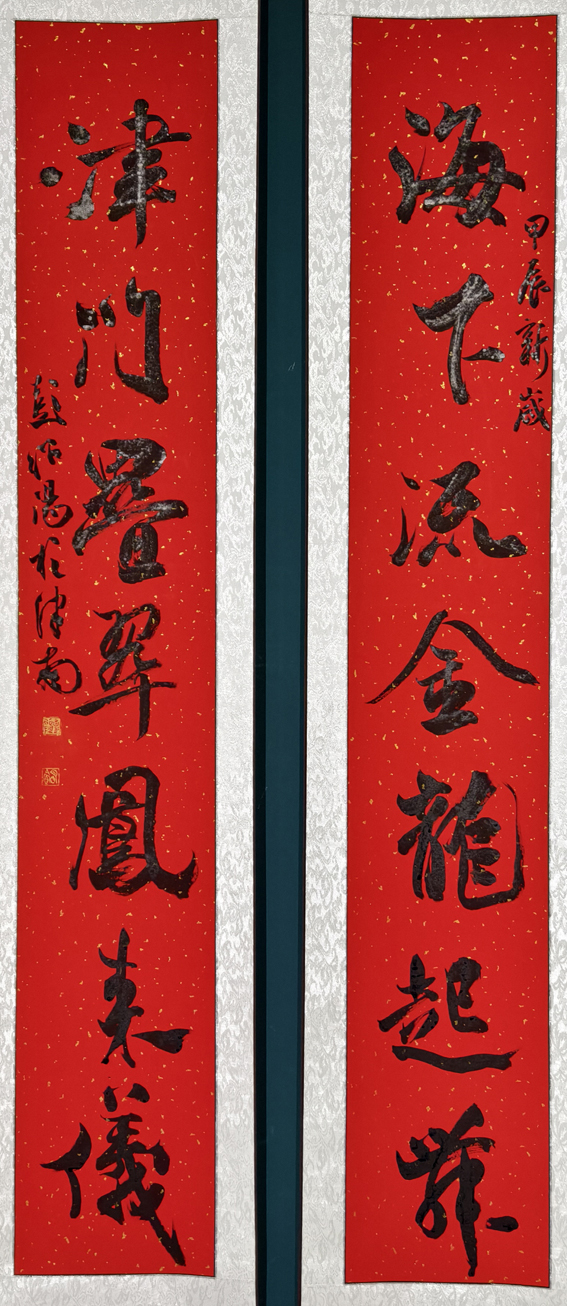 海下流金龍起舞
甲辰新歲
津門疊翠鳳來儀
於津南